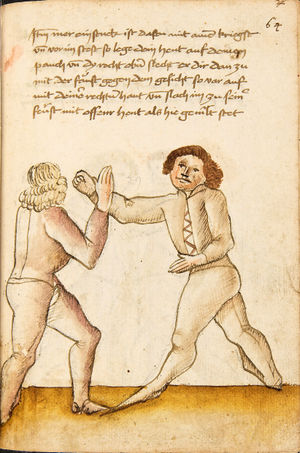 64
Itm mer ein stuck ist das du mit aine kriegst
vn vor im stest so lege dein hant auf deinen
pauch vn dy recht ob er slecht er dir dan zu
mit der faust gegen dem gesicht so var auf
mit deiner rechtn hant vn slach im zu seiner
faust mit offener hant als hie gemalt stet